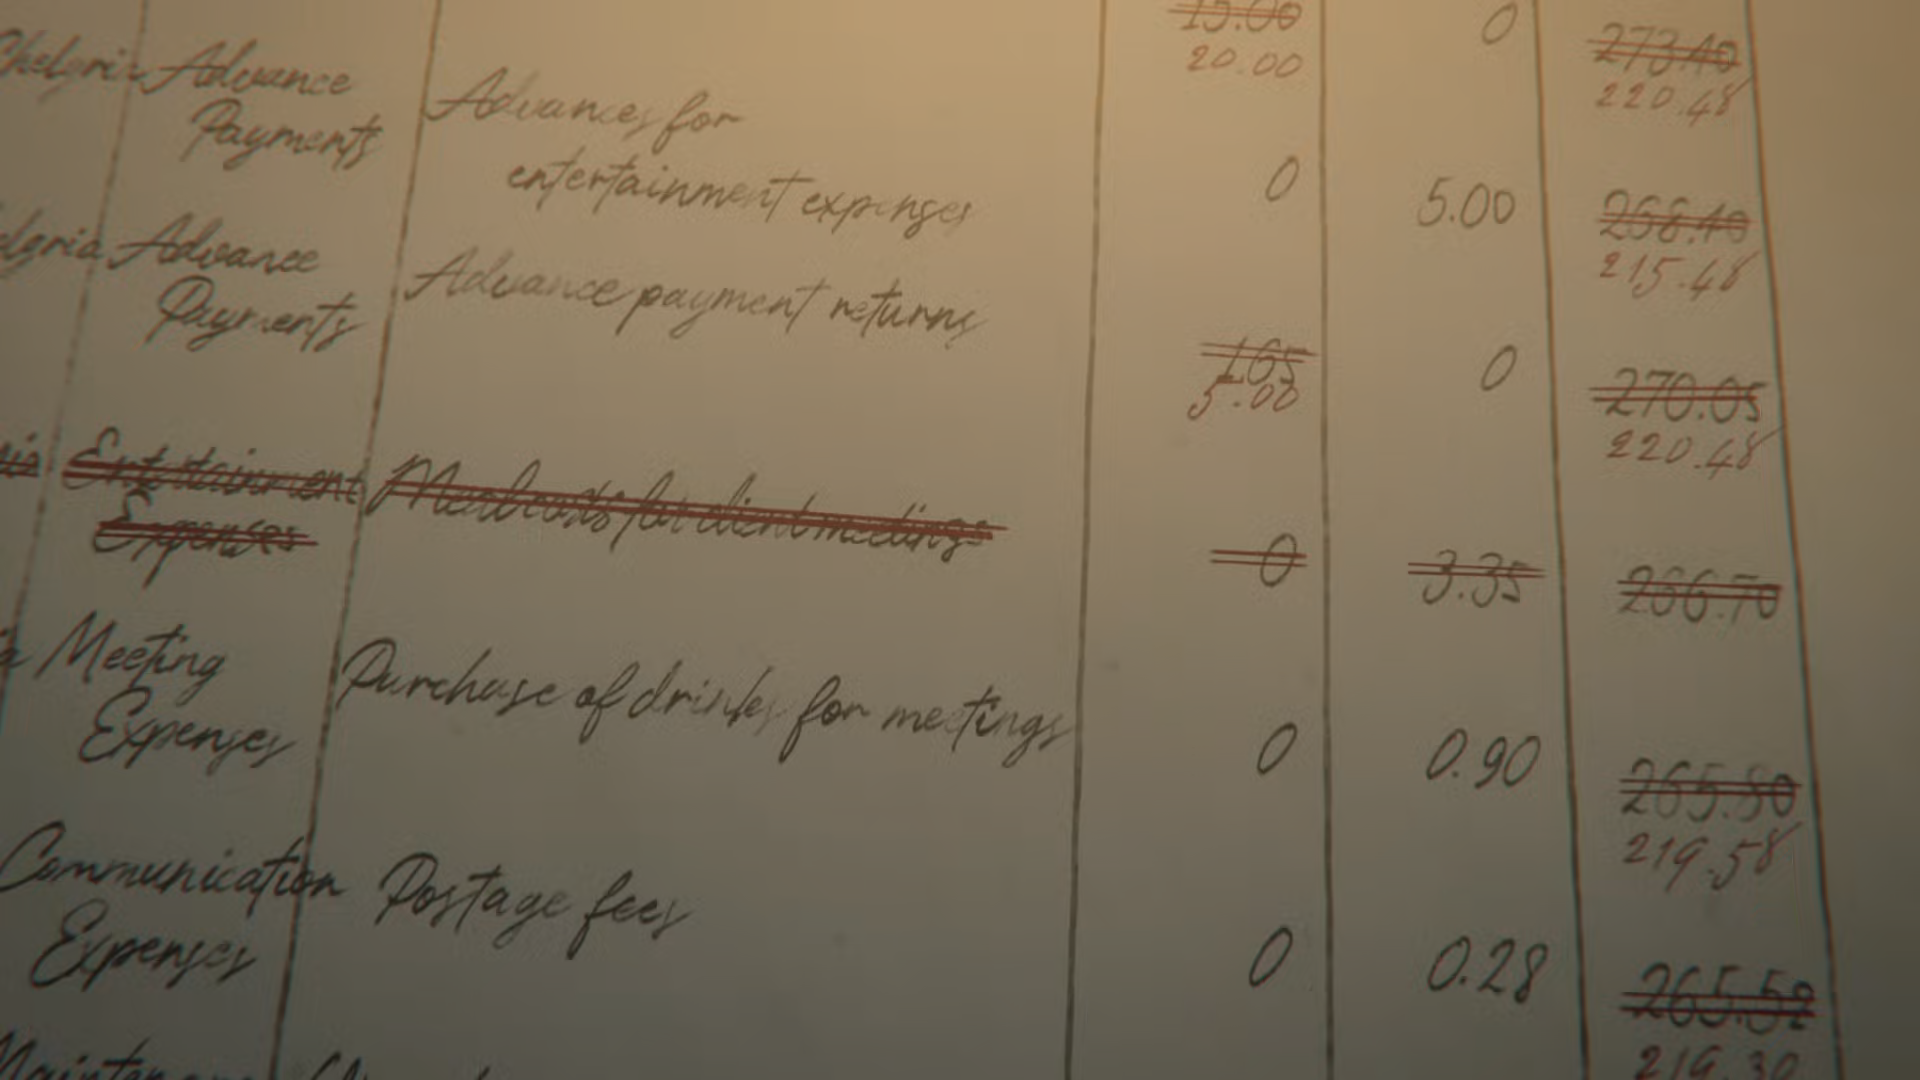 15.00 0 273.40
20.00 220.48
Chelgria Advance Payments Advances for entertainment expenses 0 5.00 268.40
215.48
elgria Advance Payments Advance payment returns 1.65 0 270.05
5.00 220.48
ria Entertainment Expenses Meal costs for client meetings 0 3.35 266.70
ia Meeting Expenses Purchase of drinks for meetings 0 0.90 265.80
219.58
Communication Expenses Postage fees 0 0.28 265.52
219.30